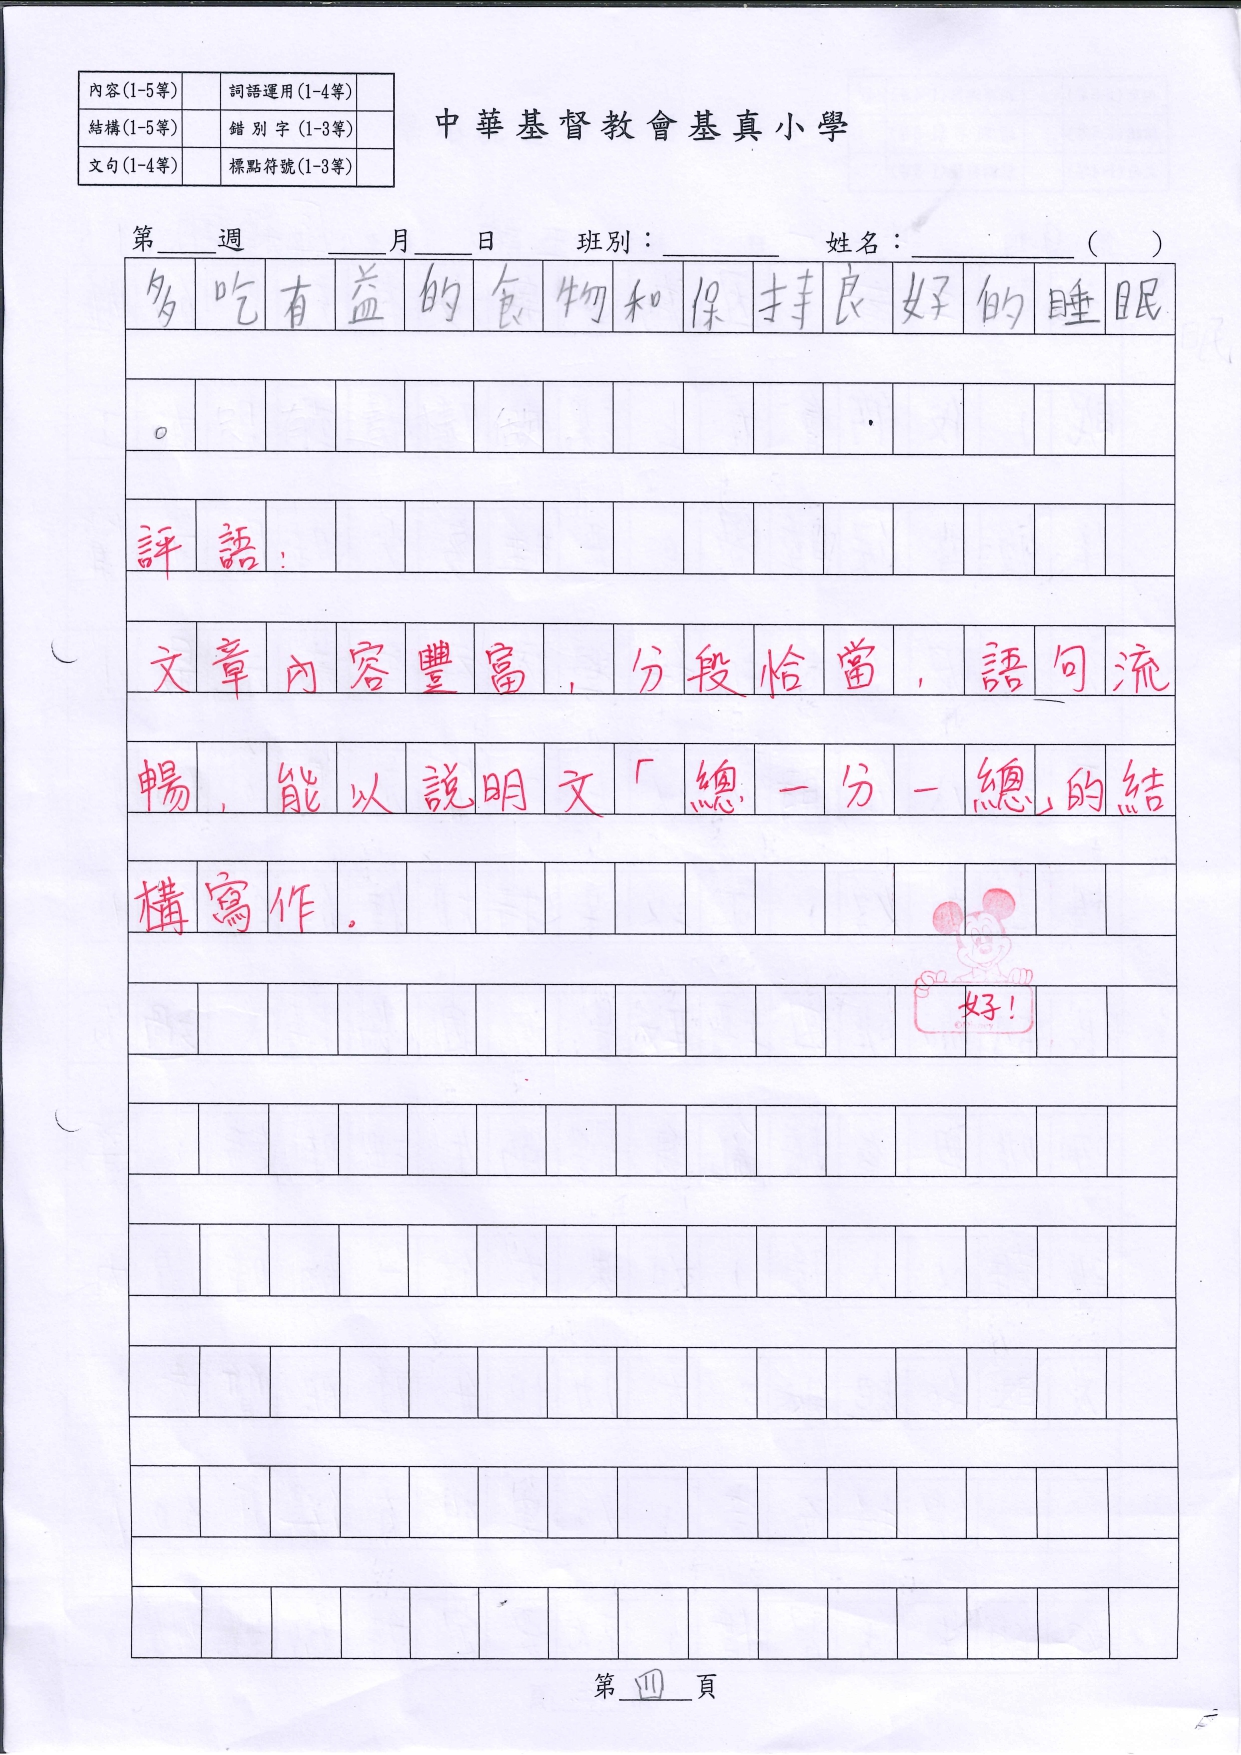 內容(1-5等) 詞語運用(1-4等)
結構(1-5等) 錯別字(1-3等)
文句(1-4等) 標點符號(1-3等)
中華基督教會基真小學
第____週 ____月____日 班別：________ 姓名：____________（ ）
多吃有益的食物和保持良好的睡眠
。
評語：
文章內容豐富，分段恰當，語句流
暢，能以說明文「總－分－總」的結
構寫作。
好！
第 四 頁